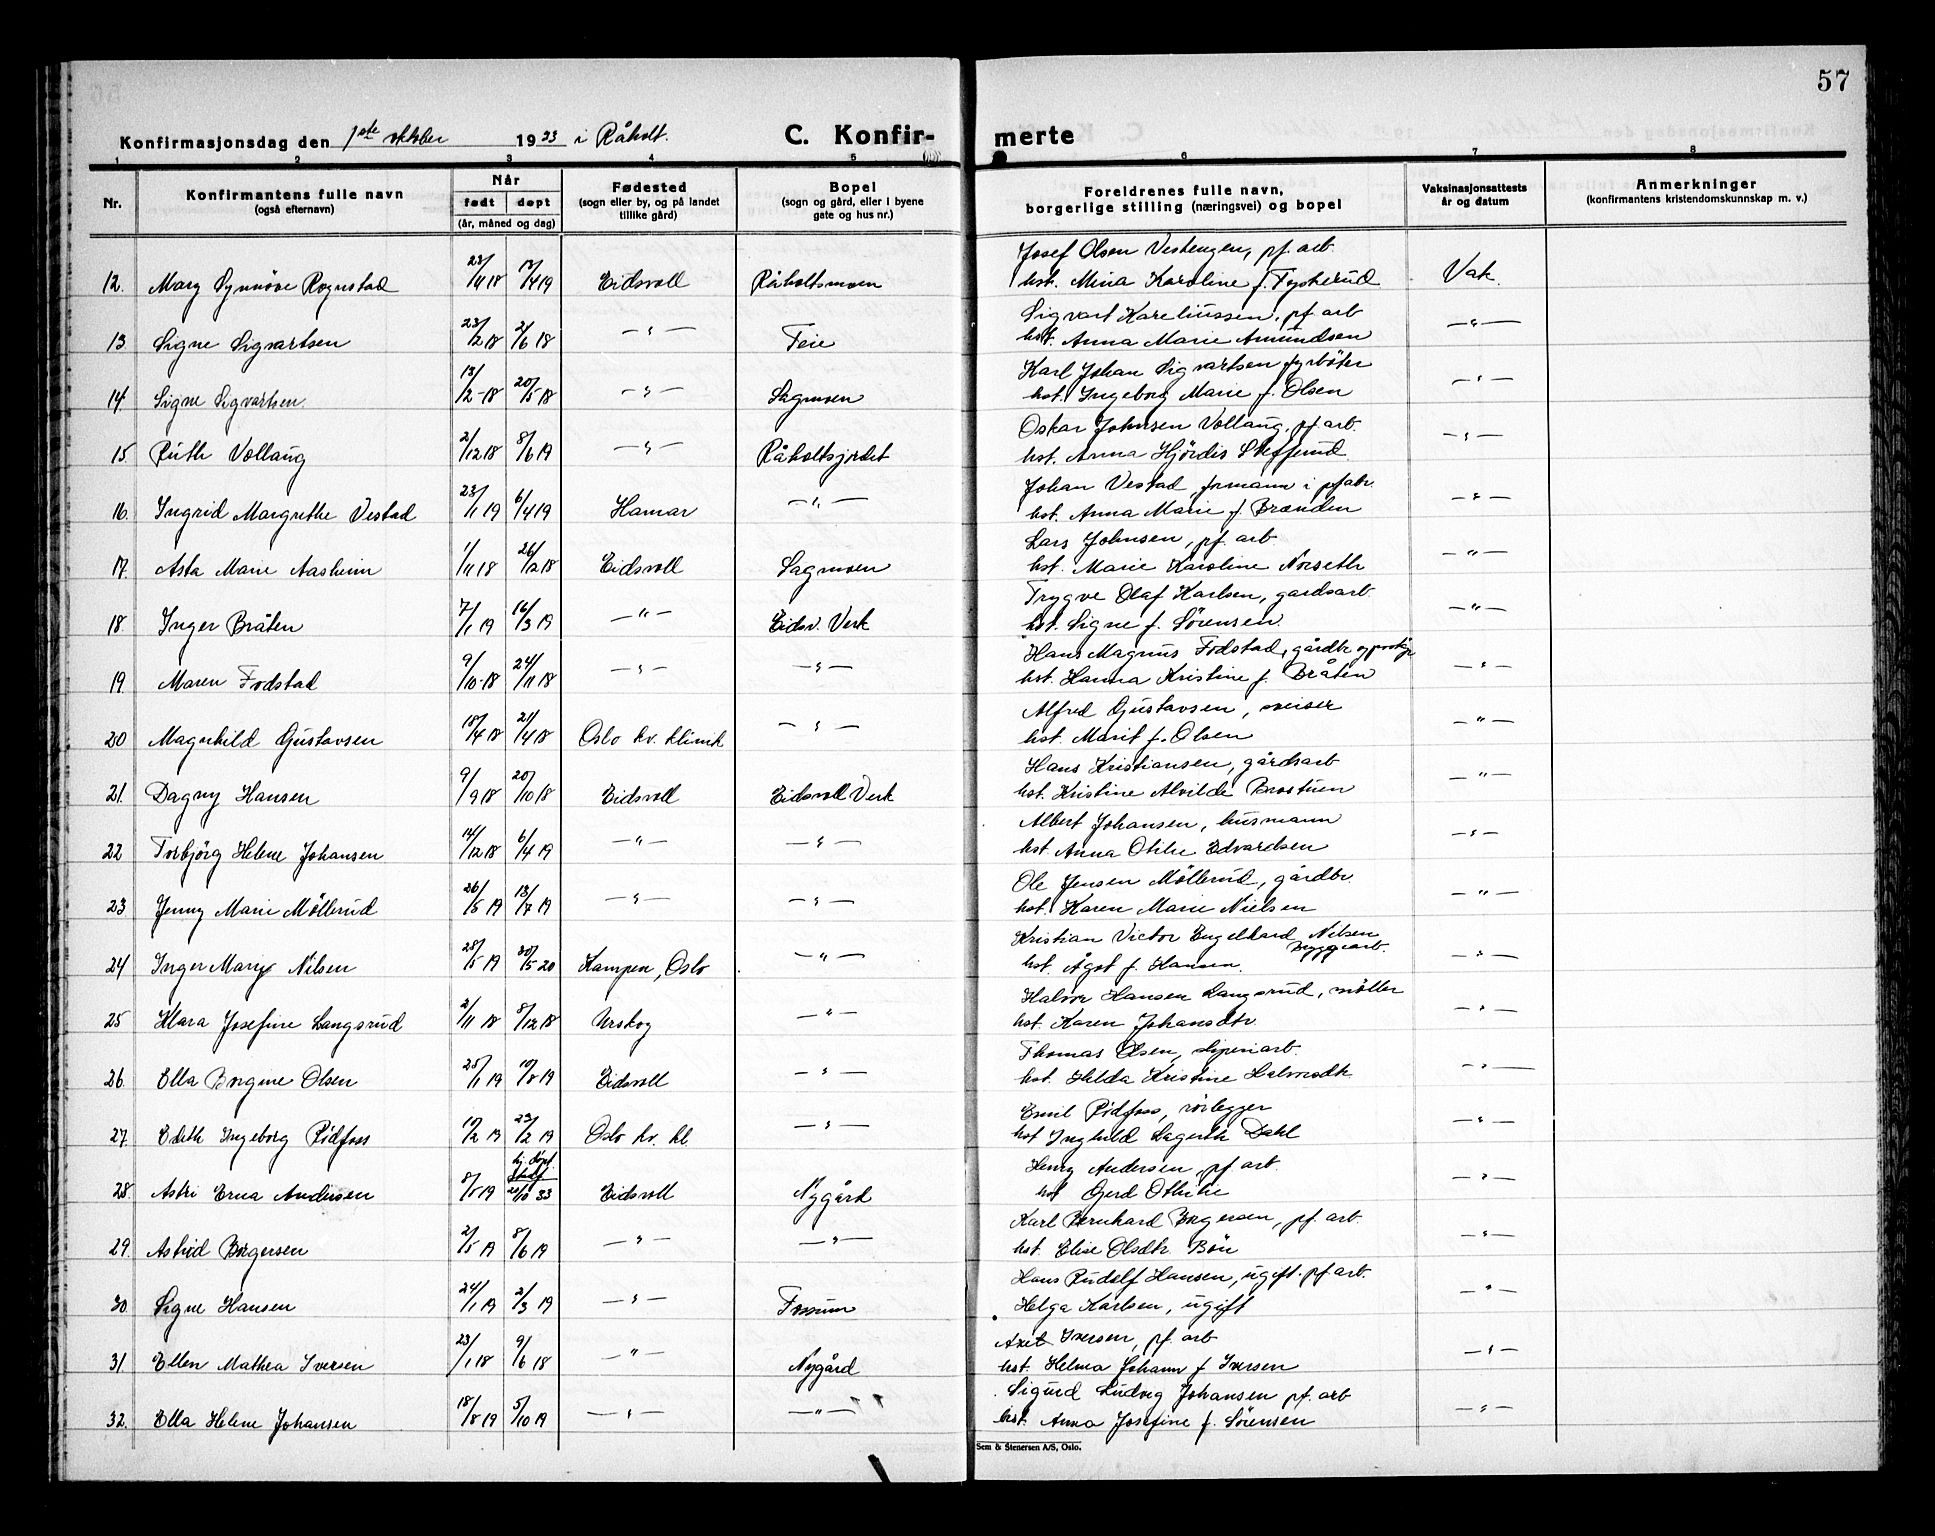 57
Konfirmasjonsdag den 1ste oktober 1933 i Råholt. C. Konfir- merte
1 2 3 4 5 6 7 8
Nr. Konfirmantens fulle navn (også efternavn) Når født døpt (år, måned og dag) Fødested (sogn eller by, og på landet tillike gård) Bopel (sogn og gård, eller i byene gate og hus nr.) Foreldrenes fulle navn, borgerlige stilling (næringsvei) og bopel Vaksinasjonsattests år og datum Anmerkninger (konfirmantens kristendomskunnskap m. v.)
Josef Olsen Vestengen, pf. arb.
12. Mary Synnöve Rognstad 23/11 18 7/4 19 Eidsvoll Råholtsmoen hst. Mina Karoline f. Tyskerud Vak.
Sigvart Kareliussen, pf. arb
13 Signe Sigvartsen 23/2 18 2/6 18 —"— Feie hst. Anna Marie Amundsen —"—
Karl Johan Sigvartsen fyrböter
14. Signe Sigvartsen. 13/2-18 20/5-18 —"— Sagmoen hst. Ingeborg Marie f. Olsen —"—
Oskar Johnsen Vollaug, pf. arb.
15. Ruth Vollaug 2/12 18 8/6 19 —"— Råholtsjordet hst. Anna Hjördis —"—
Johan Vestad, formann i pfabr.
16. Ingrid Margrethe Vestad 23/1 19 6/4 19 Hamar —"— hst. Anna Marie f. Brænden —"—
Lars Johnsen, pf. arb.
17. Asta Marie Aasheim 1/11 18 26/12 18 Eidsvoll Sagmoen hst. Marie Karoline Norseth —"—
Trygve Olaf Karlsen, gardsarb.
18. Inger Bråten 7/1 19 16/3 19 —"— Eidsv. Verk hst. Signe f. Sörensen. —"—
Hans Magnus Fodstad, gårdbr og
19. Maren Fodstad 9/10-18 24/11 18 —"— —"— hst. Hanna Kristine f. Bråten —"—
Alfred Gustavsen, sveiser
20 Magnhild Gustavsen 10/4 18 21/4 18 Oslo kv. klinik —"— hst. Marit f. Olsen —"—
Hans Kristiansen, gårdsarb
21. Dagny Hansen 9/9 18 20/10 18 Eidsvoll Eidsvoll Verk hst. Kristine Alvilde Brostuen —"—
Albert Johansen, husmann
22 Torbjörg Helene Johansen 14/12 18 6/4 19 —"— —"— hst. Anna Otilie Edvardsen —"—
Ole Jensen Möllerud, gårdbr.
23 Jenny Marie Möllerud 26/5 19 13/7 19 —"— —"— hst. Karen Marie Nielsen —"—
Kristian Victor Engelhard Nilsen
Byggearb.
24 Inger Mary Nilsen 28/5 19 30/5 20 Kampen, Oslo —"— hst. Ågot f. Hansen. —"—
Halvor Hansen Langsrud, möller
25 Klara Josefine Langsrud 2/11 18 8/12 18 Urskog —"— hst. Karen Johansdtr. —"—
Thomas Olsen, sliperiarb.
26. Ella Borgine Olsen 25/1 19 10/8 19 Eidsvoll —"— hst. Helda Kristine Halvorsdtr. —"—
Emil Rödfoss, rörlegger
27. Edith Ingeborg Rödfoss 10/2 19 23/2 19 Oslo kv. kl. —"— hst Inghild Lagerta Dahl —"—
hj. döpt Henry Andersen, pf. arb.
28. Astri Erna Andersen 8/5 19 20/10 33 Eidsvoll Nygård hst Gerd Othilie —"—
Karl Bernhard Borgersen, pf. arb.
29. Astrid Borgersen 2/5 19 8/6 19 —"— —"— hst. Elise Olsdtr. Bön —"—
Hans Rudolf Hansen, ugift. pf arb.
30. Signe Hansen 24/1 19 2/3 19 —"— Fossum Helga Karlsen, ugift "
Axel Iversen, pf. arb
31. Ellen Mathea Iversen 23/1 18 9/6 18 —"— Nygård hst. Helma Johann f. Iversen —"—
Sigurd Ludvig Johansen pf. arb
32. Ella Helene Johansen 18/8 19 5/10 19 —"— —"— hst. Anna Josefine f. Sörensen —"—
Sem & Stenersen A/S, Oslo.